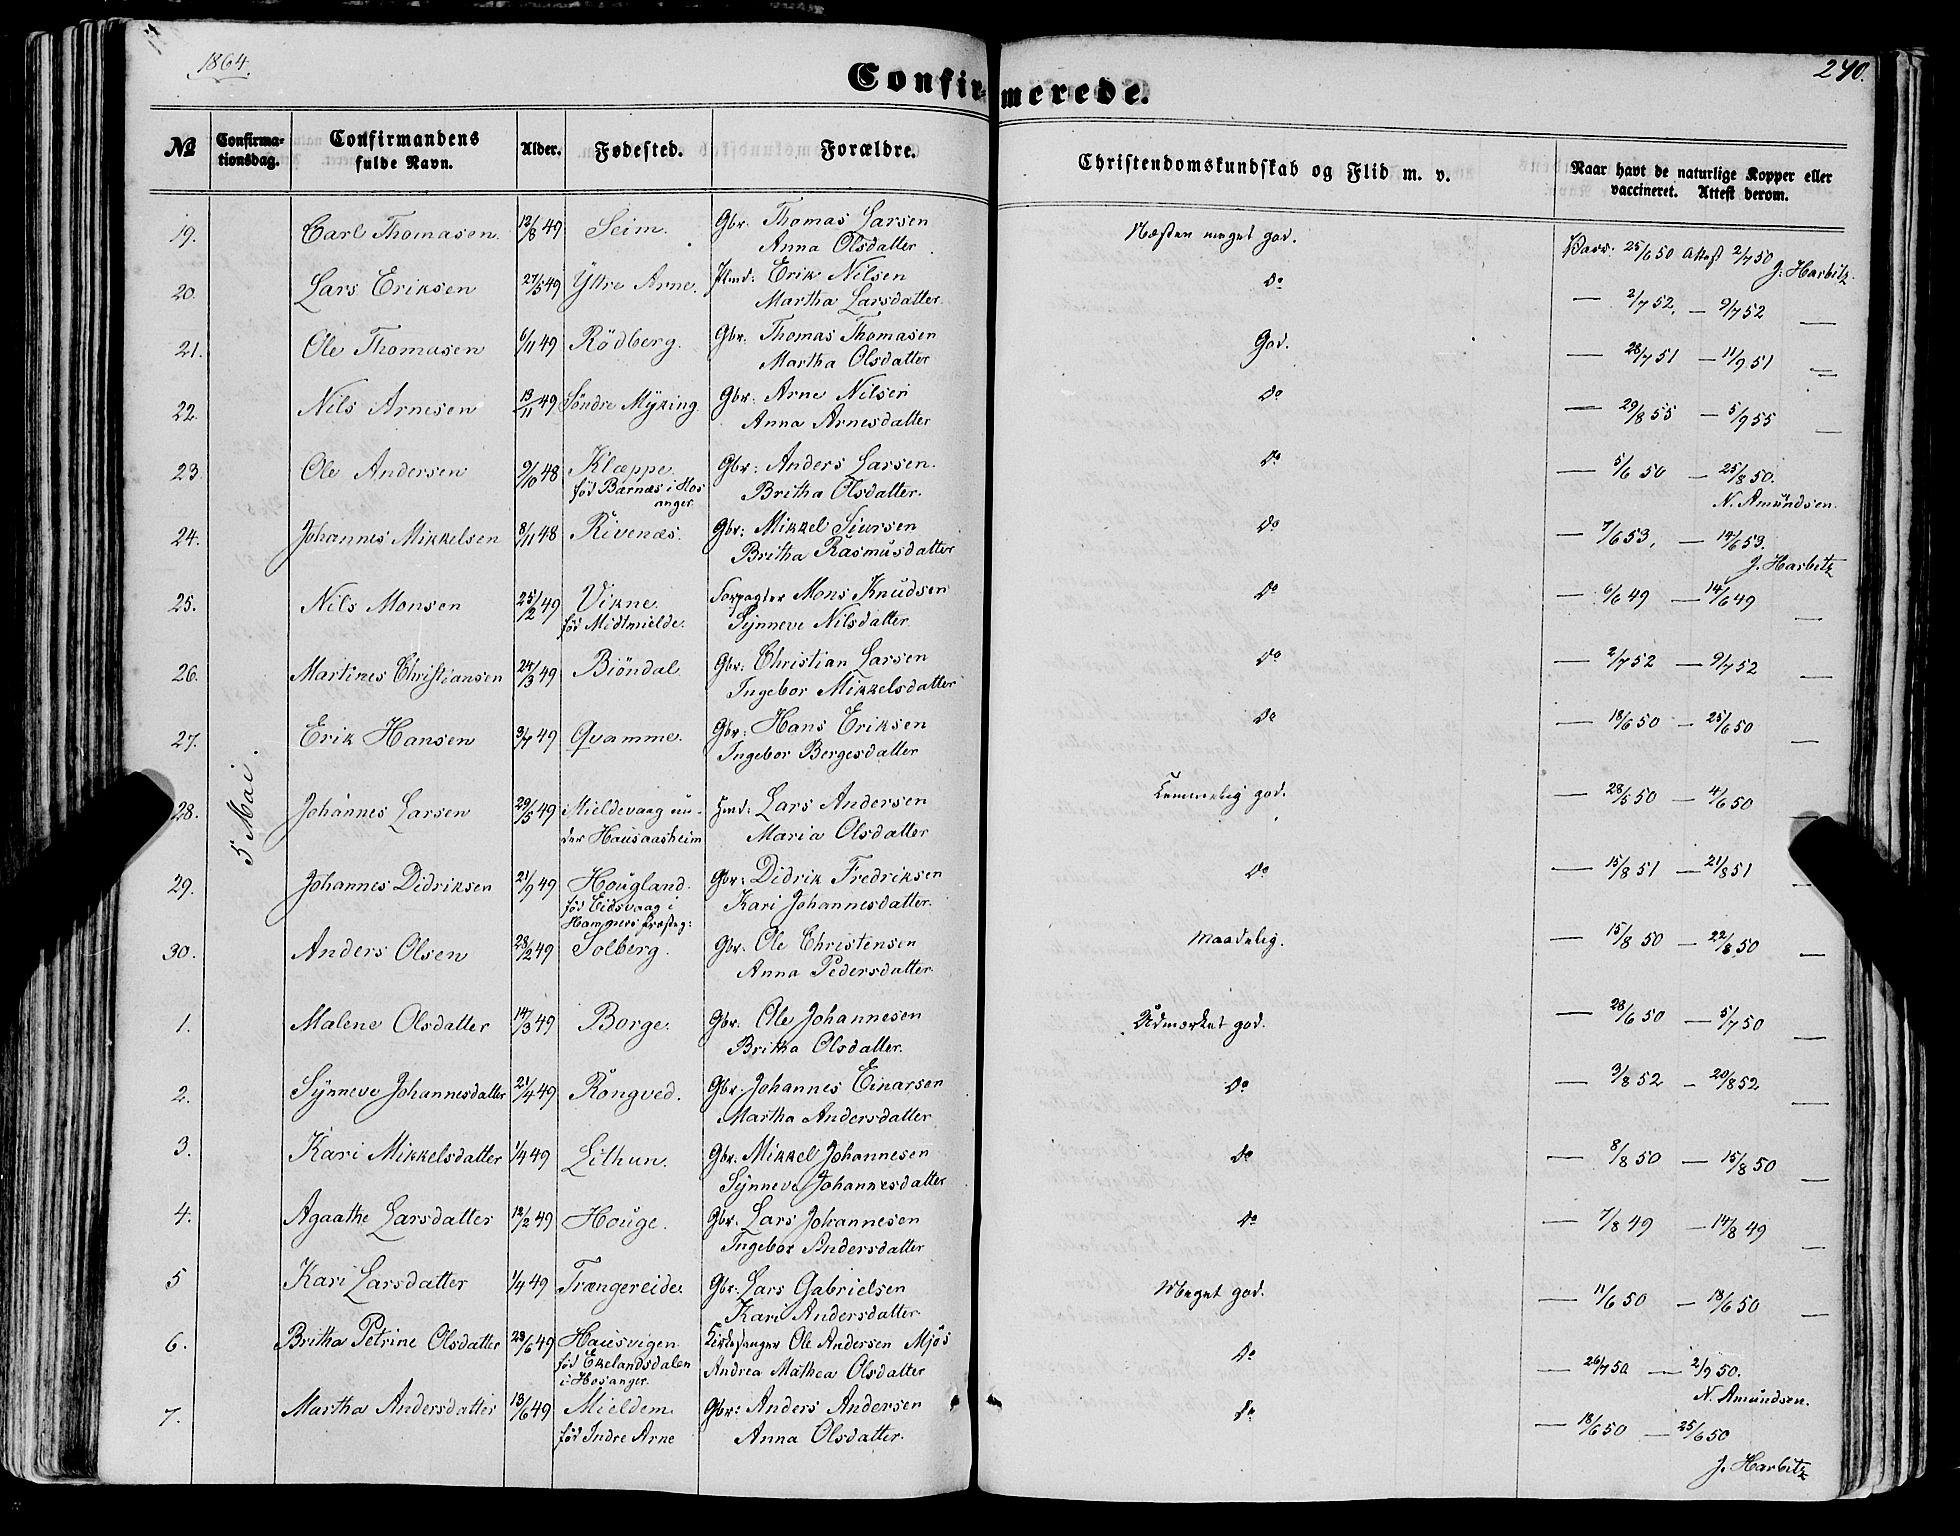 1864.
240.
Confirmerede.
№ Confirmationsdag. Confirmandens fulde Navn. Alder. Fødested. Forældre. Christendomskundskab og Flid m. v. Naar havt de naturlige Kopper eller vaccineret. Attest derom.
5 Mai.
19. Carl Thomasen. 12/8 49 Seim. Gbr. Thomas Larsen Næsten meget god. Vacc. 25/6 50 Attest 2/7 50
Anna Olsdatter J. Harbitz.
20. Lars Eriksen 27/5 49 Yttre Arne. Plmd: Erik Nilsen do 2/7 52. — 9/7 52 —
Martha Larsdatter.
21. Ole Thomasen 6/11 49 Rödberg. Gbr. Thomas Thomasen God. — 28/7 51 — 11/9 51 —
Martha Olsdatter
22. Nils Arnesen 13/11 49 Söndre Myking. Gbr. Arne Nilsen do — 29/8 55 — 5/9 55 —
Anna Arnesdatter
23. Ole Andersen 9/10 48 Klæppe. Gbr: Anders Larsen. do — 5/6 50 — 25/8 50.
föd Barnæs i Hos Britha Olsdatter. N. Amündsen.
anger.
24. Johannes Mikkelsen 8/11 48 Rivenæs. Gbr: Mikkel Siursen do — 7/6 53. — 14/6 53.
Britha Rasmusdatter J. Harbitz
25. Nils Monsen 25/2 49 Vikne. Forpagter Mons Knudsen do — 6/6 49 — 14/6 49
föd Midtmielde. Synneve Nilsdatter. —
26. Martines Christiansen 24/3 49 Biöndal Gbr: Christian Larsen do — 2/7 52 — 9/7 52
Ingebor Mikkelsdatter —
27. Erik Hansen 3/7 49 Qvamme. Gbr: Hans Eriksen do — 18/6 50 — 25/6 50
Ingebor Bergesdatter —
28. Johannes Larsen 29/5 49 Mieldevaag un- Hmd: Lars Andersen Temmelig god. — 28/5 50 — 4/6 50
der Hausaasheim Maria Olsdatter —
29. Johannes Didriksen 21/9 49 Hougland. Gbr: Didrik Fredriksen do — 15/8 51 — 21/8 51 —
föd Eidsvaag i Kari Johannesdatter.
Hammers Præsteg:
30. Anders Olsen 28/2 49 Solberg. Gbr. Ole Christensen Maadelig. — 15/8 50 — 22/8 50 —
Anna Pedersdatter
1. Malene Olsdatter 14/3 49 Borge. Gbr. Ole Johannesen Udmærket god. — 28/6 50 — 5/7 50 —
Britha Olsdatter.
2. Synneve Johannesdatter 21/4 49 Rongved. Gbr. Johannes Einarsen do — 3/8 52 — 20/8 52
Martha Andersdatter —
3. Kari Mikkelsdatter 1/4 49 Lithun. Gbr. Mikkel Johannesen do — 8/8 50 — 15/8 50 —
Synneve Johannesdatter
4. Agaathe Larsdatter 12/2 49 Houge. Gbr. Lars Johannesen do — 7/8 49 — 14/8 49 —
Ingebor Andersdatter
5 Kari Larsdatter 1/4 49 Trængereide. Gbr. Lars Gabrielsen Meget god. — 11/6 50 — 18/6 50 —
Kari Andersdatter
6. Britha Petrine Olsdatter 23/6 49 Hausvigen Kirkesanger Ole Andersen Mjös do — 26/7 50 — 2/9 50.
föd Ekelandsdalen Andrea Mathea Olsdatter N. Amundsen.
i Hosanger.
7. Martha Andersdatter 13/6 49 Mieldem Gbr: Anders Andersen do — 18/6 50 — 25/6 50
föd Indre Arne Anna Olsdatter. J. Harbitz